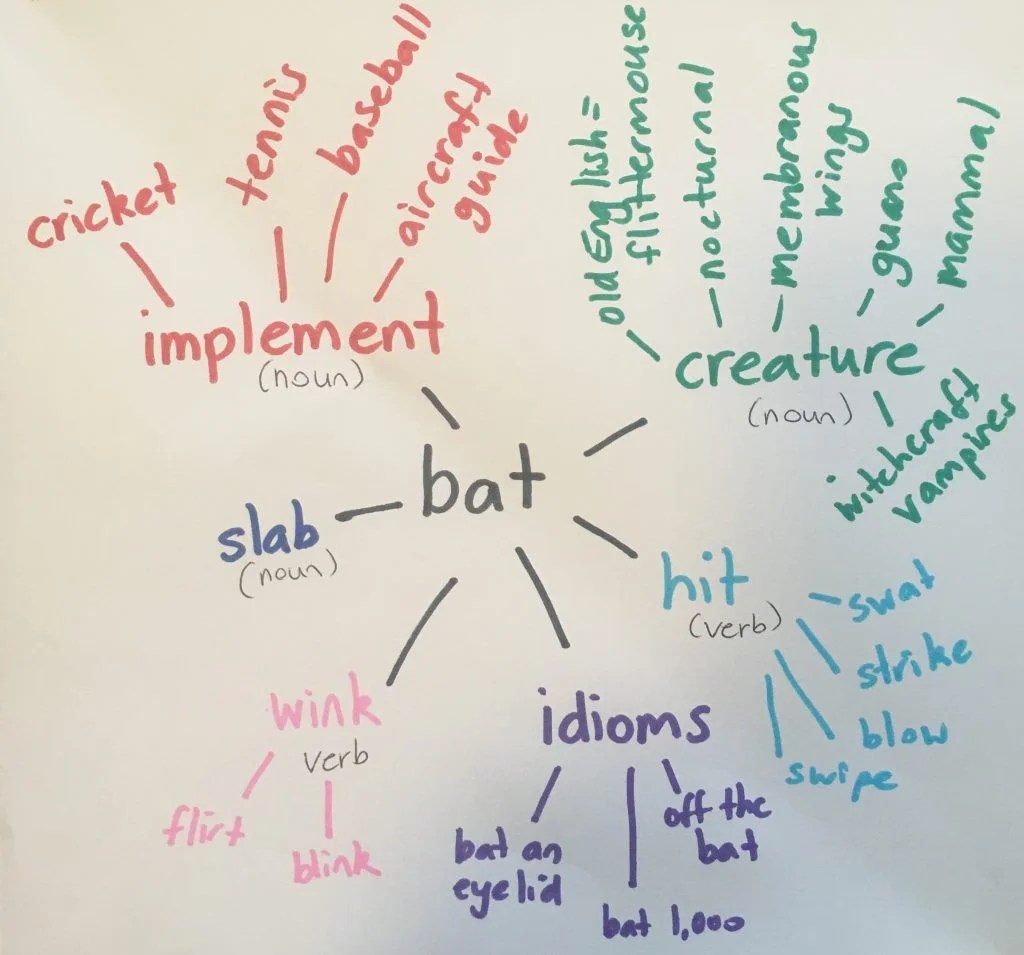 bat
implement
(noun)
cricket
tennis
baseball
aircraft
guide
creature
(noun)
old English =
flittermouse
nocturnal
membranous
wings
guano
mammal
witchcraft
vampires
hit
(verb)
swat
strike
blow
swipe
idioms
off the
bat
bat 1,000
bat an
eyelid
wink
verb
flirt
blink
slab
(noun)